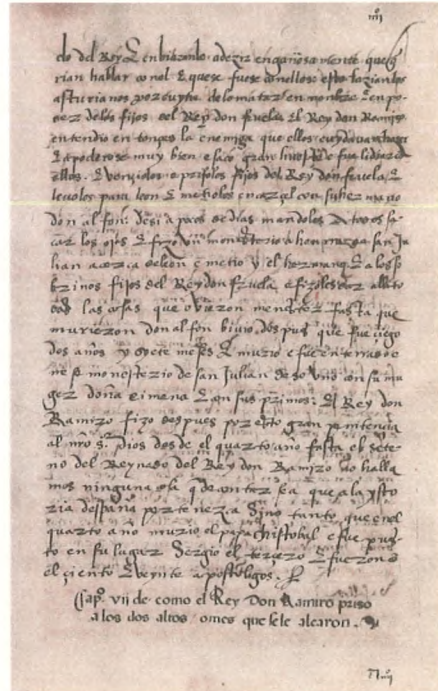 iiij
do del Rey E enbiaronle a dezir engañosamente que q
rian hablar con el E que se fuese con ellos esto hazian los
asturianos por cuyta de lo matar en nonbre E en po
der de los fijos del Rey don fruela El Rey don Ramiro
entendio entonçes la enemiga que ellos cuydavan hazer
E apoderose muy bien e saco gran hueste e fue lidiar con
ellos. E vençiolos e priso los fijos del Rey don fruela E
levolos para leon E metiolos en carçel con su hermano
don alfon: desi a pocos de dias mandoles a todos sa
car los ojos E fizo un monesterio a honrra de san Ju
lian açerca de leon e metio y el hermano E a los so
brinos fijos del Rey don fruela. e fizoles dar alli to
das las cosas que ovieron menester fasta que
murieron don alfon bivio despues que fue çiego
dos años y syete meses E murio e fue enterrado e
n ese monesterio de san Julian de so uno con su mu
ger doña ximena E con sus primos: El Rey don
Ramiro fizo despues por esto gran penitençia
al nro s. Dios desde el quarto año fasta el sete
no del Reynado del Rey don Ramiro no halla
mos ninguna cosa que de contar sea que a la ysto
ria despaña pertenezca sino tanto que en el
quarto año murio el papa christobal e fue pues
to en su lugar Sergio el terçero E fueron e
el çiento E veynte apostoligos.
Cap. vij de como el Rey Don Ramiro priso
a los dos altos omes que se le alçaron.